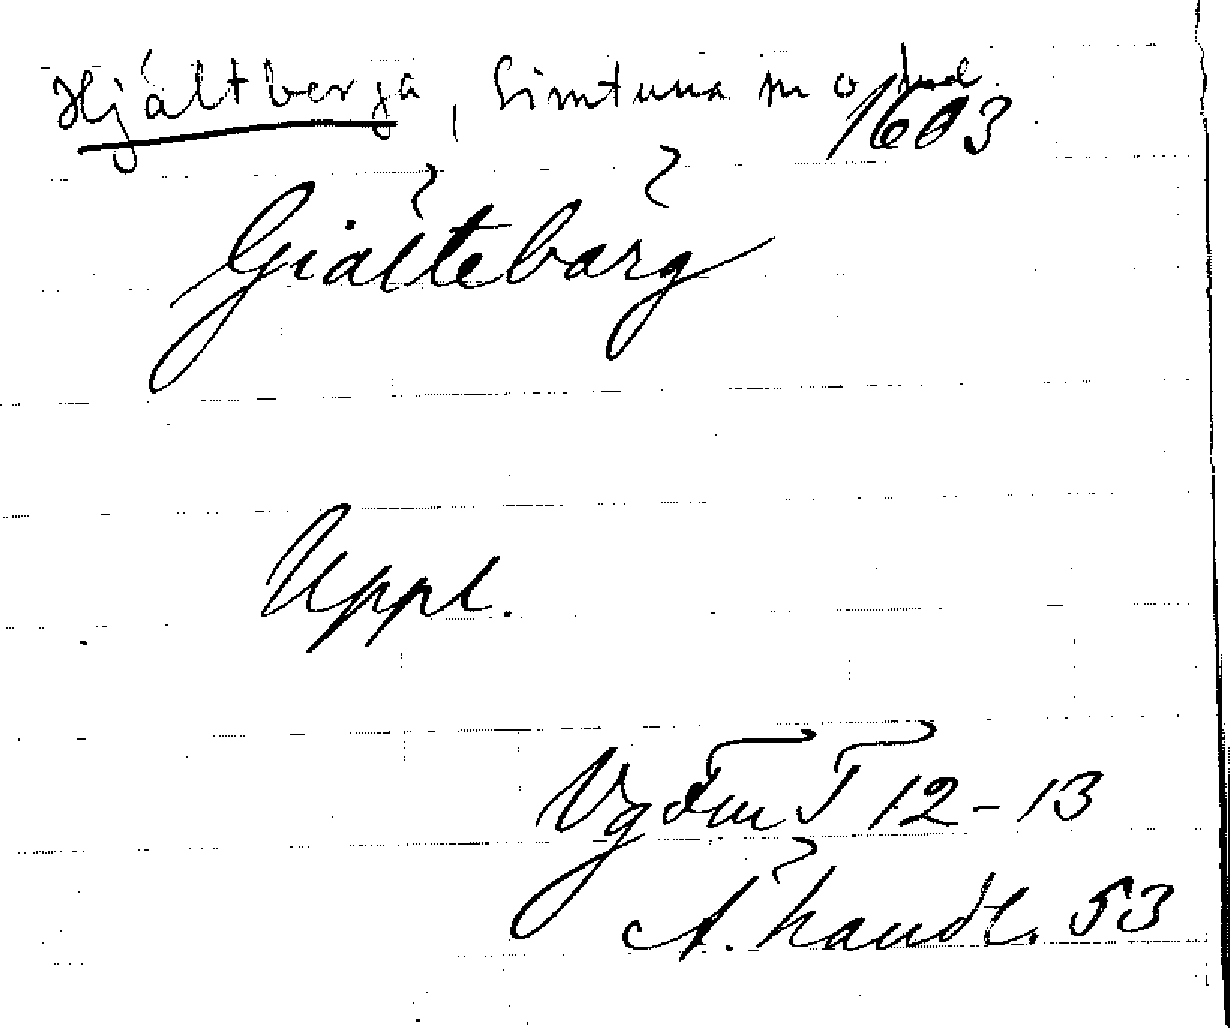 Hjältberga, Simtuna sn o hd.
1603
Giälteberg
Uppl.
12-13
A. handl. 53